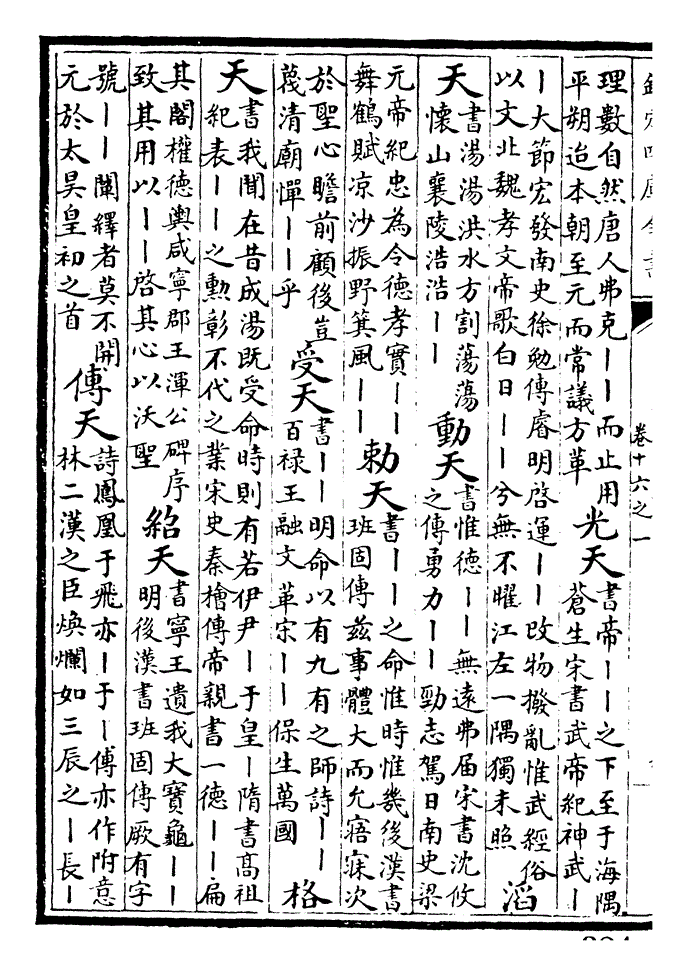 欽定四庫全書
卷十六之一
理數自然唐人弗克丨丨而止用
平朔迨本朝至元而常議方革
光天
書帝丨丨之下至于海隅
蒼生宋書武帝紀神武丨
丨大節宏發南史徐勉傳睿明啓運丨丨改物撥亂惟武經俗
以文北魏孝文帝歌白日丨丨兮無不曜江左一隅獨未照
滔
天
書湯湯洪水方割蕩蕩
懷山襄陵浩浩丨丨
動天
書惟德丨丨無遠弗届宋書沈攸
之傳勇力丨丨勁志駕日南史梁
元帝紀忠為令德孝實丨丨
舞鶴賦凉沙振野箕風丨丨
勅天
書丨丨之命惟時惟幾後漢書
班固傳兹事體大而允寤寐次
於聖心瞻前顧後豈
蔑清廟憚丨丨乎
受天
書丨丨明命以有九有之師詩丨丨
百禄王融文革宋丨丨保生萬國
格
天
書我聞在昔成湯既受命時則有若伊尹丨于皇丨隋書髙祖
紀表丨丨之勲彰不代之業宋史秦檜傳帝親書一德丨丨扁
其閣權德輿咸寧郡王渾公碑序
致其用以丨丨啓其心以沃聖
紹天
書寧王遺我大寳龜丨丨
明後漢書班固傳厥有字
號丨丨闡繹者莫不開
元於太昊皇初之首
傅天
詩鳳凰于飛亦丨于丨傅亦作附意
林二漢之臣煥爛如三辰之丨長丨